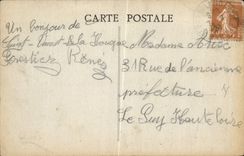 CARTE POSTALE
Un bonjour de
Saint Vaast de la Hougue
René
Madame
31 Rue de l'ancienne
préfecture
Le Puy Haute Loire